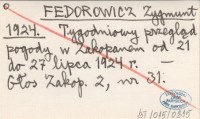 FEDOROWICZ Zygmunt
1924. Tygodniowy przegląd
pogody w Zakopanem od 21
do 27 lipca 1924 r. —
Głos Zakop. 2, nr 31.